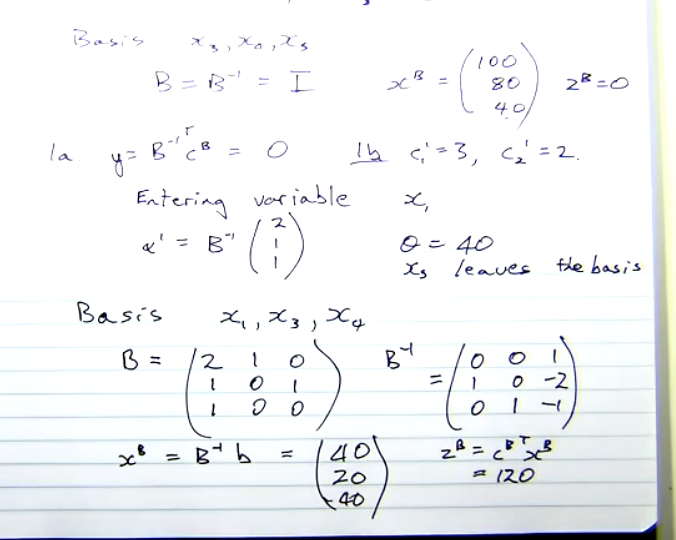 Basis x₃, x₄, x₅
B = B⁻¹ = I xᴮ = (100 80 40) zᴮ = 0
1a y = B⁻¹ᵀcᴮ = 0 1b c₁' = 3, c₂' = 2.
Entering variable x₁
α' = B⁻¹ (2 1 1) θ = 40
x₅ leaves the basis
Basis x₁, x₃, x₄
B = (2 1 0
1 0 1
1 0 0)
B⁻¹ = (0 0 1
1 0 -2
0 1 -1)
xᴮ = B⁻¹ b = (40 20 40) zᴮ = cᴮᵀxᴮ
= 120